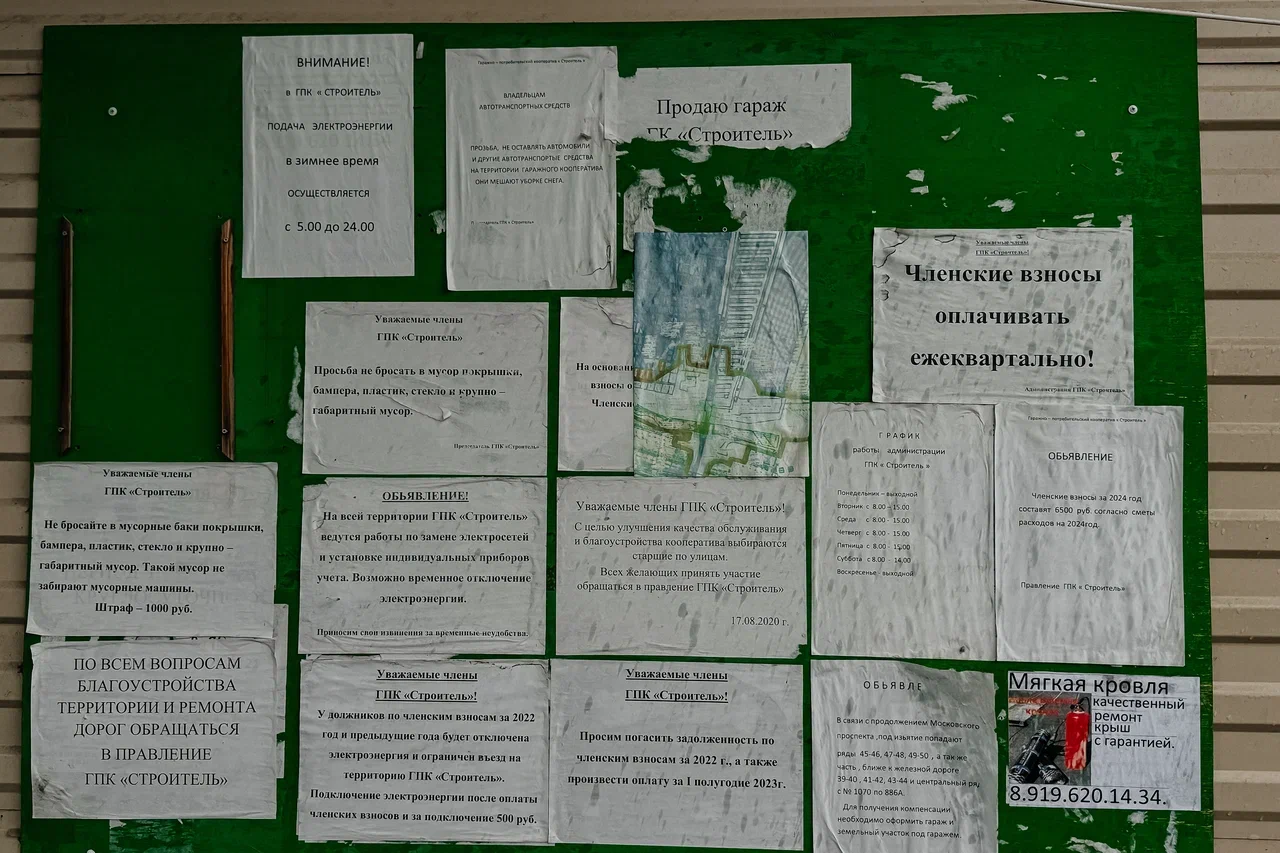 ВНИМАНИЕ!
в ГПК « СТРОИТЕЛЬ»
ПОДАЧА ЭЛЕКТРОЭНЕРГИИ
в зимнее время
ОСУЩЕСТВЛЯЕТСЯ
с 5.00 до 24.00
Гаражно – потребительский кооператив « Строитель »
ВЛАДЕЛЬЦАМ
АВТОТРАНСПОРТНЫХ СРЕДСТВ
ПРОЗЬБА, НЕ ОСТАВЛЯТЬ АВТОМОБИЛИ
И ДРУГИЕ АВТОТРАНСПОРТЫЕ СРЕДСТВА
НА ТЕРРИТОРИИ ГАРАЖНОГО КООПЕРАТИВА
ОНИ МЕШАЮТ УБОРКЕ СНЕГА.
ГПК « Строитель»
Продаю гараж
ГК «Строитель»
Уважаемые члены
ГПК «Строитель»!
Членские взносы
оплачивать
ежеквартально!
Администрация ГПК «Строитель»
Уважаемые члены
ГПК «Строитель»
Просьба не бросать в мусор покрышки,
бампера, пластик, стекло и крупно –
габаритный мусор.
Председатель ГПК «Строитель»
На основан
взносы о
Членски
ГРАФИК
работы администрации
ГПК « Строитель »
Понедельник – выходной
Вторник с 8.00 – 15.00
Среда с 8.00 - 15.00
Четверг с 8.00 - 15.00
Пятница с 8.00 - 15.00
Суббота с 8.00 - 14.00
Воскресенье - выходной
Гаражно – потребительский кооператив « Строитель »
ОБЬЯВЛЕНИЕ
Членские взносы за 2024 год
составят 6500 руб. согласно сметы
расходов на 2024год.
Правление ГПК « Строитель»
Уважаемые члены
ГПК «Строитель»
Не бросайте в мусорные баки покрышки,
бампера, пластик, стекло и крупно –
габаритный мусор. Такой мусор не
забирают мусорные машины.
Штраф – 1000 руб.
ОБЬЯВЛЕНИЕ!
На всей территории ГПК «Строитель»
ведутся работы по замене электросетей
и установке индивидуальных приборов
учета. Возможно временное отключение
электроэнергии.
Приносим свои извинения за временные неудобства.
Уважаемые члены ГПК «Строитель»!
С целью улучшения качества обслуживания
и благоустройства кооператива выбираются
старшие по улицам.
Всех желающих принять участие
обращаться в правление ГПК «Строитель»
17.08.2020 г.
ПО ВСЕМ ВОПРОСАМ
БЛАГОУСТРОЙСТВА
ТЕРРИТОРИИ И РЕМОНТА
ДОРОГ ОБРАЩАТЬСЯ
В ПРАВЛЕНИЕ
ГПК «СТРОИТЕЛЬ»
Уважаемые члены
ГПК «Строитель»!
У должников по членским взносам за 2022
год и предыдущие года будет отключена
электроэнергия и ограничен въезд на
территорию ГПК «Строитель».
Подключение электроэнергии после оплаты
членских взносов и за подключение 500 руб.
Уважаемые члены
ГПК «Строитель»!
Просим погасить задолженность по
членским взносам за 2022 г., а также
произвести оплату за I полугодие 2023г.
ОБЬЯВЛЕ
В связи с продолжением Московского
проспекта ,под изъятие попадают
ряды 45-46, 47-48, 49-50 , а так же
часть , ближе к железной дороге
39-40 , 41-42, 43-44 и центральный ряд
с № 1070 по 886А.
Для получения компенсации
необходимо оформить гараж и
земельный участок под гаражем.
Мягкая кровля
качественный
ремонт
крыш
с гарантией.
8.919.620.14.34.